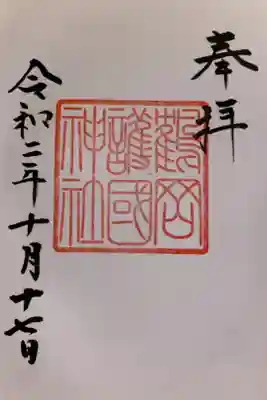 奉拝
鶴岡
護國
神社
令和二年十月十七日